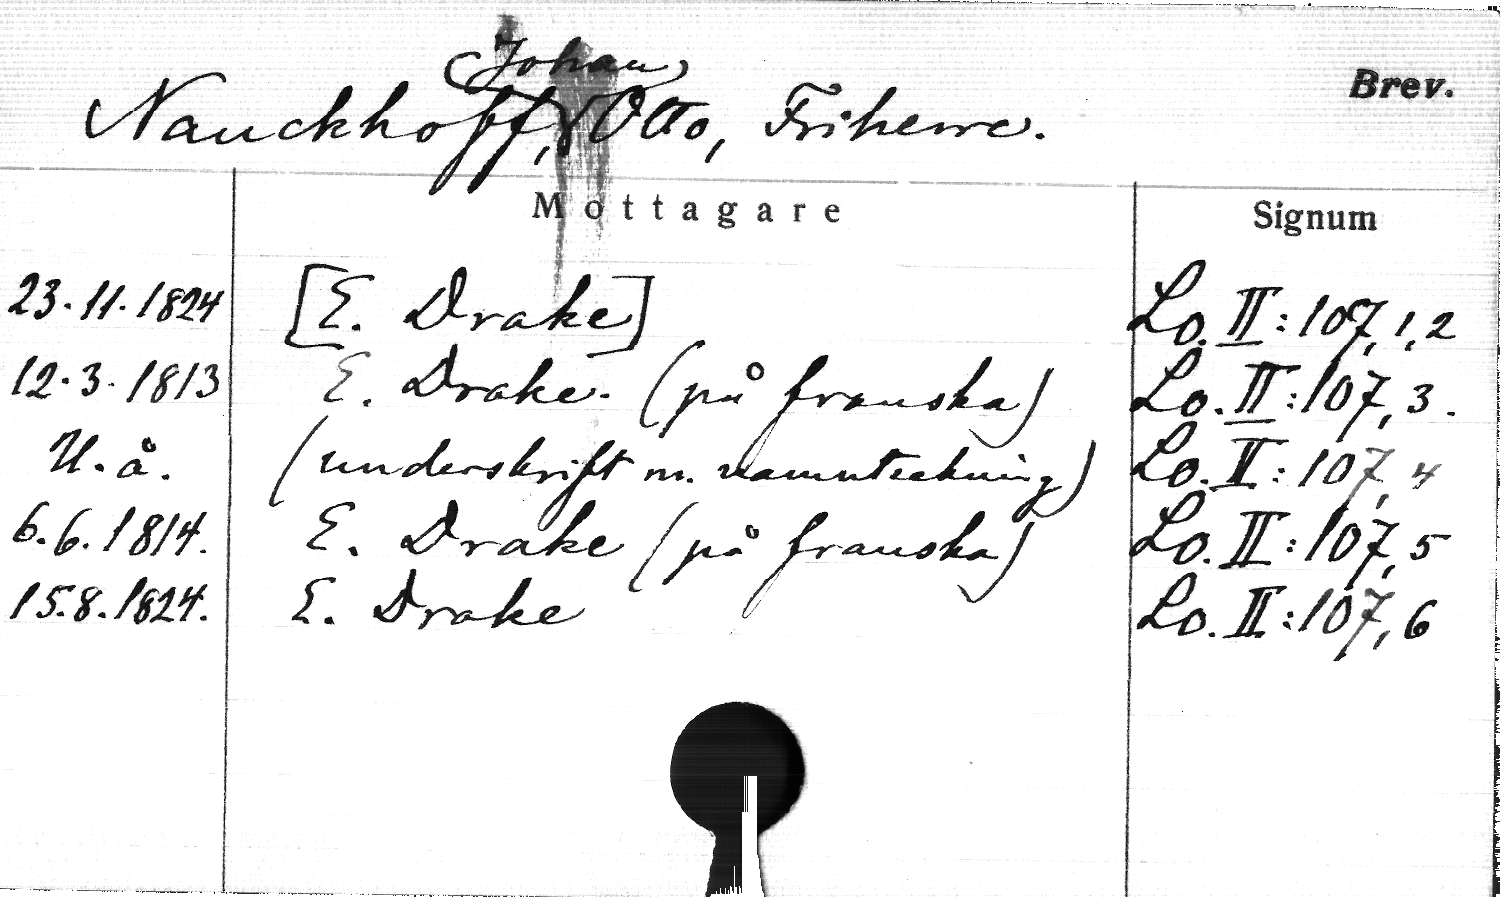 (Johan)
Nauckhoff, Otto, Friherre.
Brev.
Mottagare Signum
23.11.1824 [E. Drake] Lo. II:107,1,2
12.3.1813 E. Drake. (på franska) Lo. II:107,3.
U.å. (underskrift m. namnteckning) Lo. II:107,4
6.6.1814. E. Drake (på franska) Lo. II:107,5
15.8.1824. E. Drake Lo. II:107,6